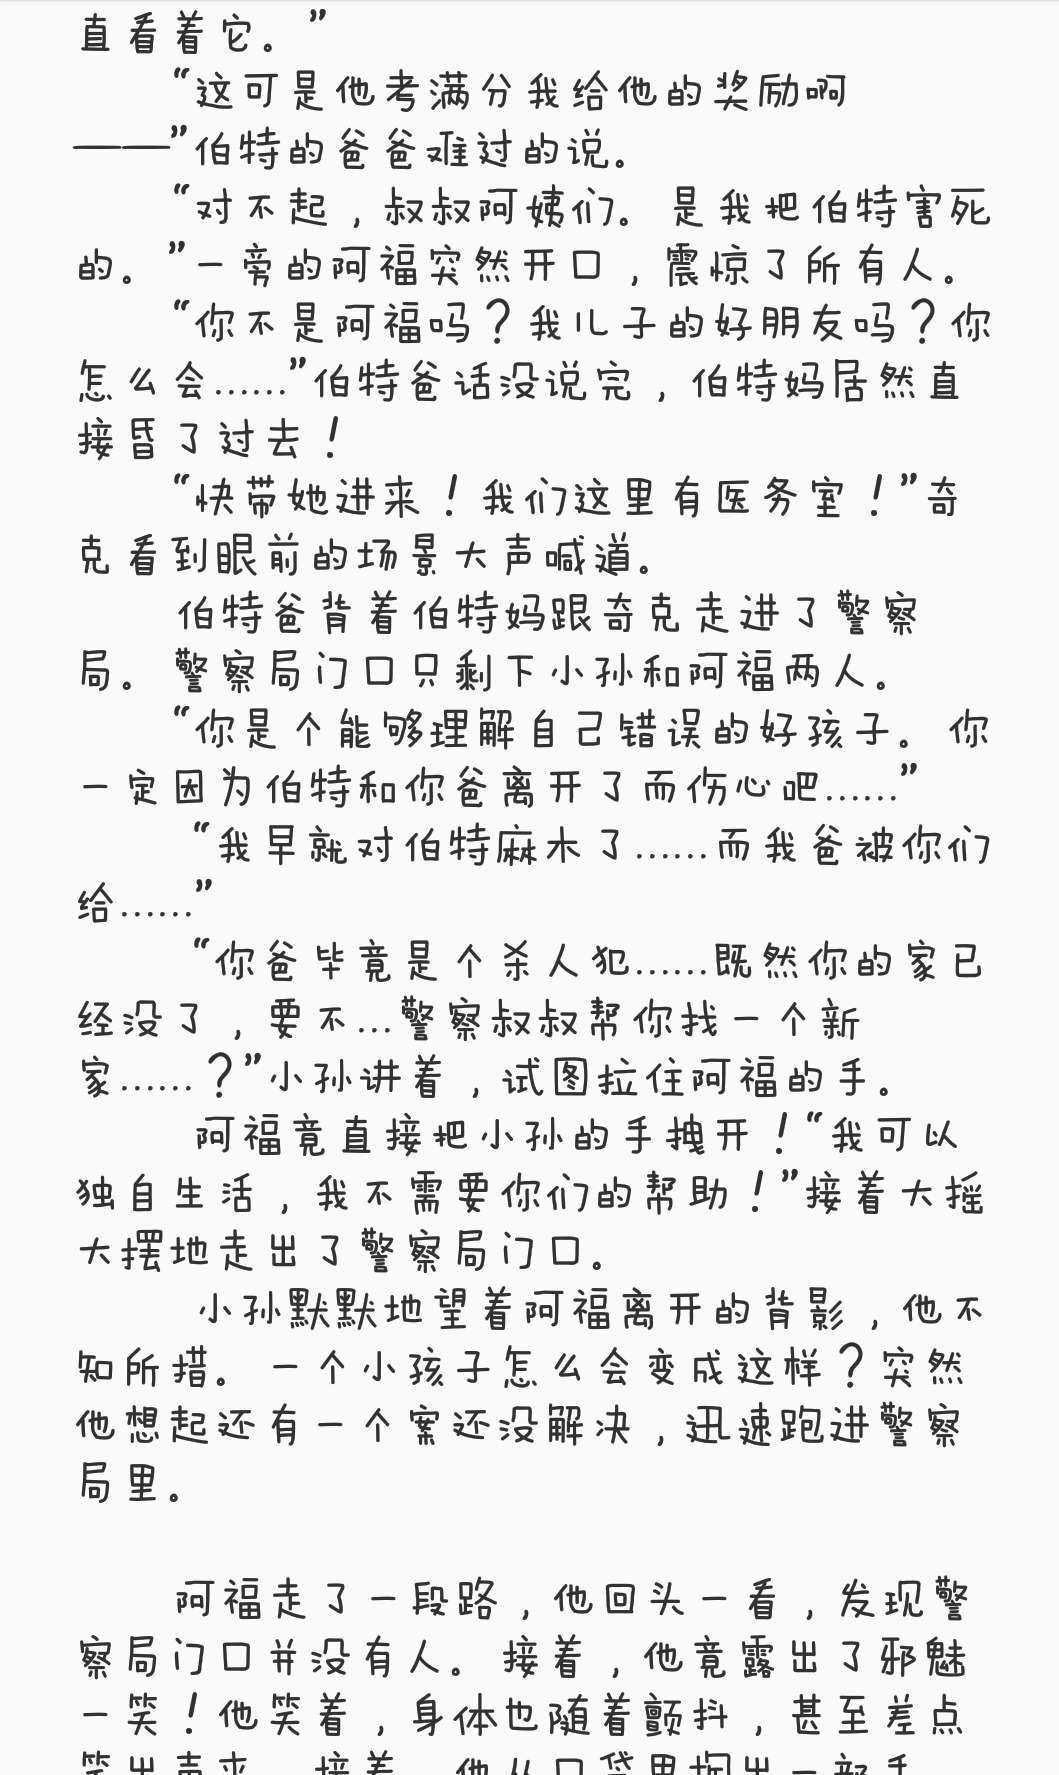 直看着它。”
“这可是他考满分我给他的奖励啊
——”伯特的爸爸难过的说。
“对不起，叔叔阿姨们。是我把伯特害死
的。”一旁的阿福突然开口，震惊了所有人。
“你不是阿福吗？我儿子的好朋友吗？你
怎么会……”伯特爸话没说完，伯特妈居然直
接昏了过去！
“快带她进来！我们这里有医务室！”奇
克看到眼前的场景大声喊道。
伯特爸背着伯特妈跟奇克走进了警察
局。警察局门口只剩下小孙和阿福两人。
“你是个能够理解自己错误的好孩子。你
一定因为伯特和你爸离开了而伤心吧……”
“我早就对伯特麻木了……而我爸被你们
给……”
“你爸毕竟是个杀人犯……既然你的家已
经没了，要不…警察叔叔帮你找一个新
家……？”小孙讲着，试图拉住阿福的手。
阿福竟直接把小孙的手拽开！“我可以
独自生活，我不需要你们的帮助！”接着大摇
大摆地走出了警察局门口。
小孙默默地望着阿福离开的背影，他不
知所措。一个小孩子怎么会变成这样？突然
他想起还有一个案还没解决，迅速跑进警察
局里。
阿福走了一段路，他回头一看，发现警
察局门口并没有人。接着，他竟露出了邪魅
一笑！他笑着，身体也随着颤抖，甚至差点
笑出声来。接着，他从口袋里掏出一部手